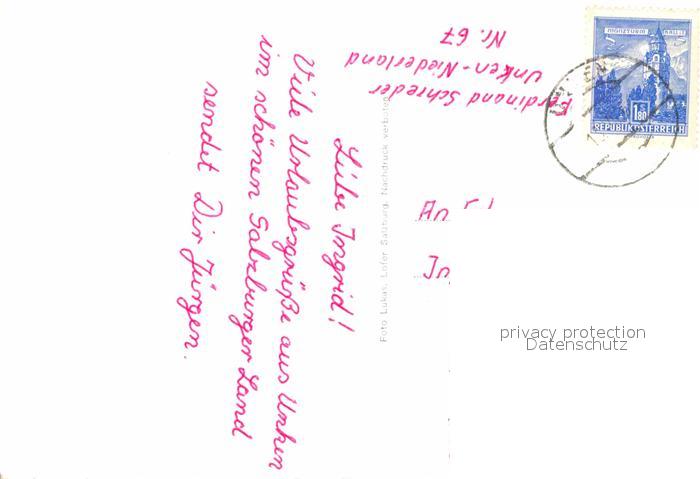 Liebe Ingrid!
Viele Urlaubsgrüße aus Unken
im schönen Salzburger Land
sendet Dir Jürgen.
Ferdinand Schreder
Unken-Niederland
Nr. 67
Foto Lukas, Lofer Salzburg. Nachdruck verboten
An
MÜNZTURM HALL I.T.
1.80
REPUBLIK ÖSTERREICH
privacy protection
Datenschutz